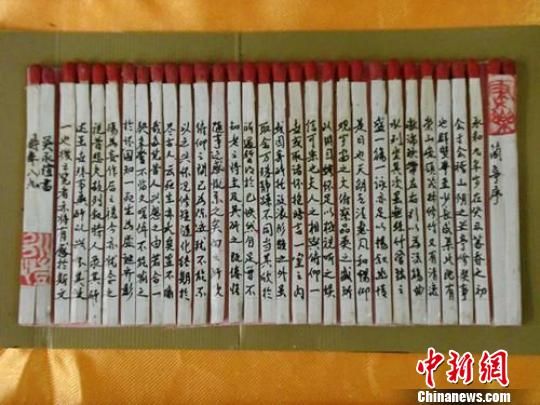 蘭亭序
永和九年歲在癸丑暮春之初
會于會稽山陰之蘭亭修禊事
也群賢畢至少長咸集此地有
崇山峻領茂林修竹又有清流
激湍映帶左右引以為流觴曲
水列坐其次雖無絲竹管弦之
盛一觴一詠亦足以暢敘幽情
是日也天朗氣清惠風和暢仰
觀宇宙之大俯察品類之盛所
以遊目騁懷足以極視聽之娛
信可樂也夫人之相與俯仰一
世或取諸懷抱悟言一室之內
或因寄所託放浪形骸之外雖
趣舍萬殊靜躁不同當其欣於
所遇暫得於己快然自足曾不
知老之將至及其所之既倦情
隨事遷感慨係之矣向之所欣
俯仰之間已為陳迹猶不能不
以之興懷況修短隨化終期於
盡古人云死生亦大矣豈不痛
哉每覽昔人興感之由若合一
契未嘗不臨文嗟悼不能喻之
於懷固知一死生為虛誕齊彭
殤為妄作後之視今亦猶今之
視昔悲夫故列敘時人錄其所
述雖世殊事異所以興懷其致
一也後之覽者亦將有感於斯文
書
時年八
中新网
Chinanews.com